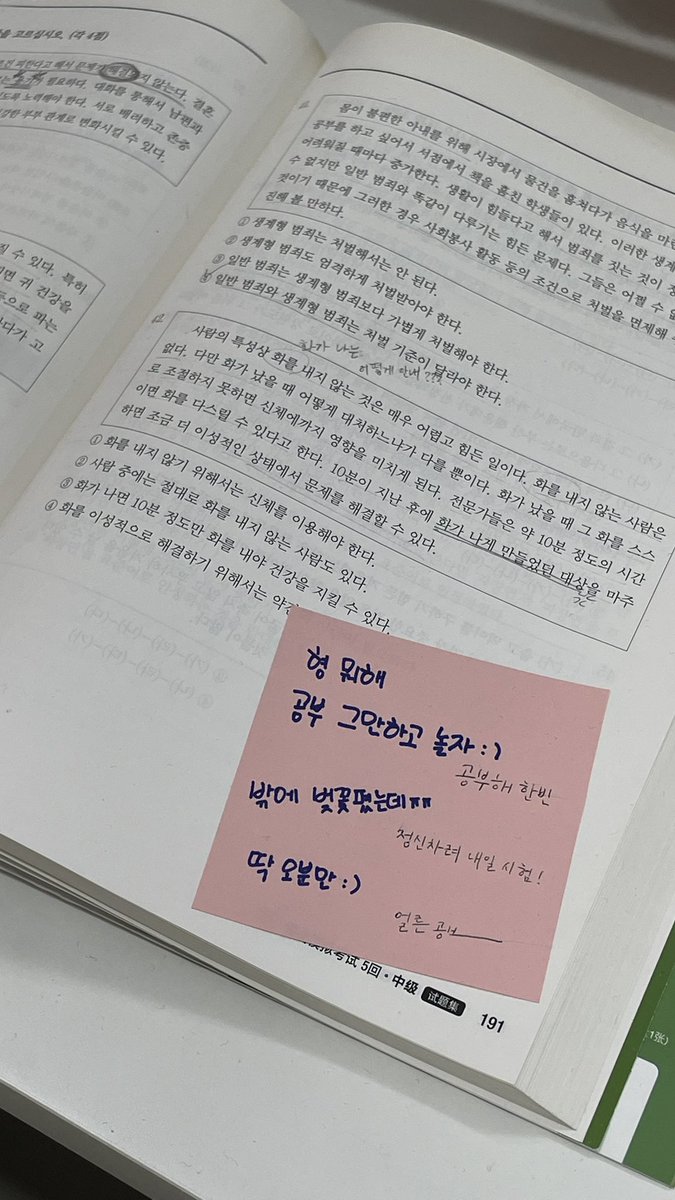 을 고르십시오. (각 4점)
피한다고 해서 문제가 해결되지 않는다. 결혼
필요하다. 대화를 통해서 남편과
노력해야 한다. 서로 배려하고 존중
강한 부부 관계로 변화시킬 수 있다.
질 수 있다. 특히
귀 건강을
으로 파는
다가 고
몸이 불편한 아내를 위해 시장에서 물건을 훔쳐다가 음식을 마련
공부를 하고 싶어서 서점에서 책을 훔친 학생들이 있다. 이러한 생계
어려워질 때마다 증가한다. 생활이 힘들다고 해서 범죄를 짓는 것이 정
수 없지만 일반 범죄와 똑같이 다루기는 힘든 문제다. 그들은 어쩔 수 없
것이기 때문에 그러한 경우 사회봉사 활동 등의 조건으로 처벌을 면제해
진해 볼 만하다.
① 생계형 범죄는 처벌해서는 안 된다.
② 생계형 범죄도 엄격하게 처벌받아야 한다.
③ 일반 범죄는 생계형 범죄보다 가볍게 처벌해야 한다.
④ 일반 범죄와 생계형 범죄는 처벌 기준이 달라야 한다.
화가 나는
어떻게 안내???
42.
사람의 특성상 화를 내지 않는 것은 매우 어렵고 힘든 일이다. 화를 내지 않는 사람은
없다. 다만 화가 났을 때 어떻게 대처하느냐가 다를 뿐이다. 화가 났을 때 그 화를 스스
로 조절하지 못하면 신체에까지 영향을 미치게 된다. 전문가들은 약 10분 정도의 시간
이면 화를 다스릴 수 있다고 한다. 10분이 지난 후에 화가 나게 만들었던 대상을 마주
하면 조금 더 이성적인 상태에서 문제를 해결할 수 있다.
① 화를 내지 않기 위해서는 신체를 이용해야 한다.
② 사람 중에는 절대로 화를 내지 않는 사람도 있다.
③ 화가 나면 10분 정도만 화를 내야 건강을 지킬 수 있다.
④ 화를 이성적으로 해결하기 위해서는 약간
형 뭐해
공부 그만하고 놀자:)
공부해 한빈
밖에 벚꽃폈는데ㅠㅠ
정신차려 내일 시험!
딱 오분만:)
얼른 공부
考试 5回·中级 试题集 191
1张)